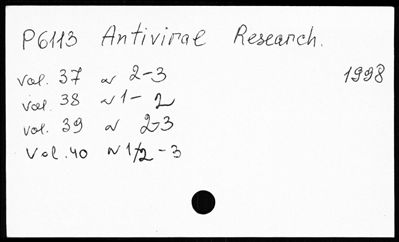 P6113 Antiviral Research.
vol. 37 N 2-3 1998
vol. 38 N 1-2
vol. 39 N 2-3
vol. 40 N 1/2-3